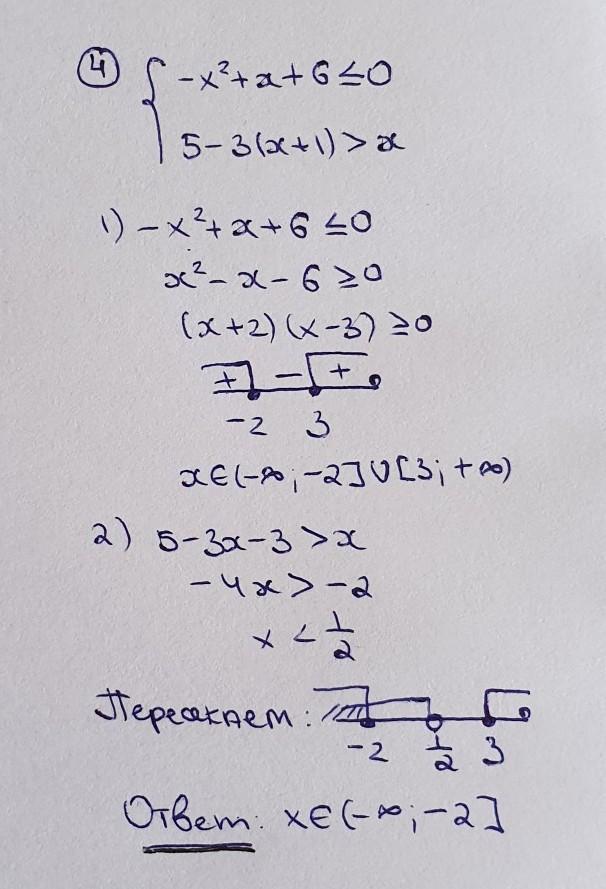 ④ { -x²+x+6≤0
5-3(x+1)>x
1) -x²+x+6≤0
x²-x-6≥0
(x+2)(x-3)≥0
+ - +
-2 3
x∈(-∞;-2]∪[3;+∞)
2) 5-3x-3>x
-4x>-2
x<1/2
Пересекаем:
-2 1/2 3
Ответ: x∈(-∞;-2]